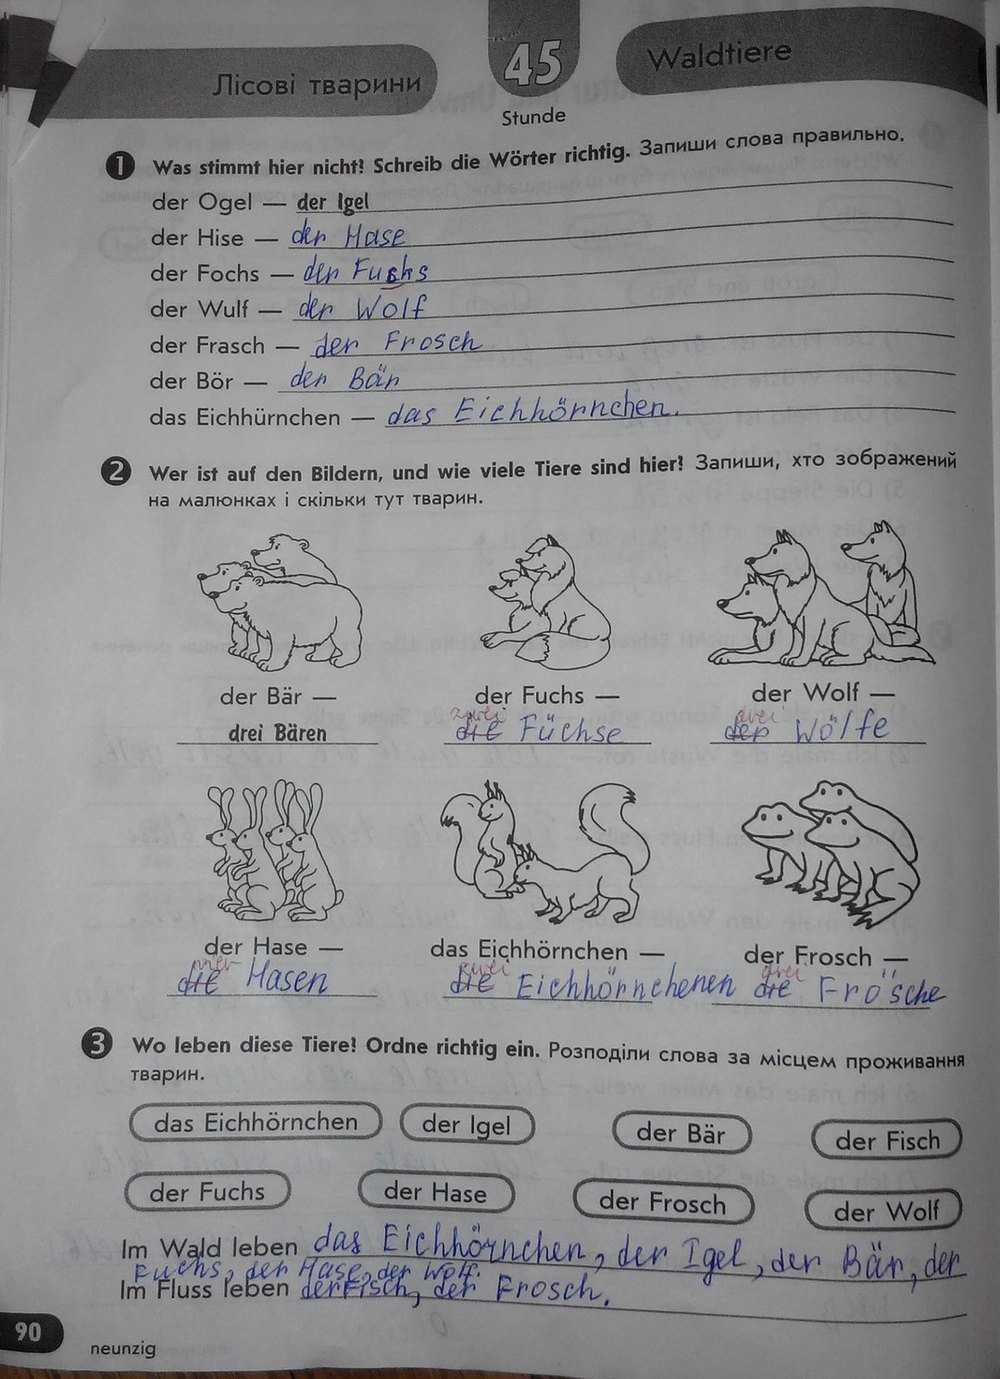 Лісові тварини
45
Stunde
Waldtiere
1 Was stimmt hier nicht? Schreib die Wörter richtig. Запиши слова правильно.
der Ogel — der Igel
der Hise — der Hase
der Fochs — der Fuchs
der Wulf — der Wolf
der Frasch — der Frosch
der Bör — der Bär
das Eichhürnchen — das Eichhörnchen.
2 Wer ist auf den Bildern, und wie viele Tiere sind hier? Запиши, хто зображений
на малюнках і скільки тут тварин.
der Bär — der Fuchs — der Wolf —
zwei drei
drei Bären die Füchse der Wölfe
der Hase — das Eichhörnchen — der Frosch —
vier zwei drei
die Hasen die Eichhörnchenen die Frösche
3 Wo leben diese Tiere? Ordne richtig ein. Розподіли слова за місцем проживання
тварин.
das Eichhörnchen der Igel der Bär der Fisch
der Fuchs der Hase der Frosch der Wolf
Im Wald leben das Eichhörnchen, der Igel, der Bär, der
Fuchs, der Hase, der Wolf.
Im Fluss leben der Fisch, der Frosch.
90
neunzig